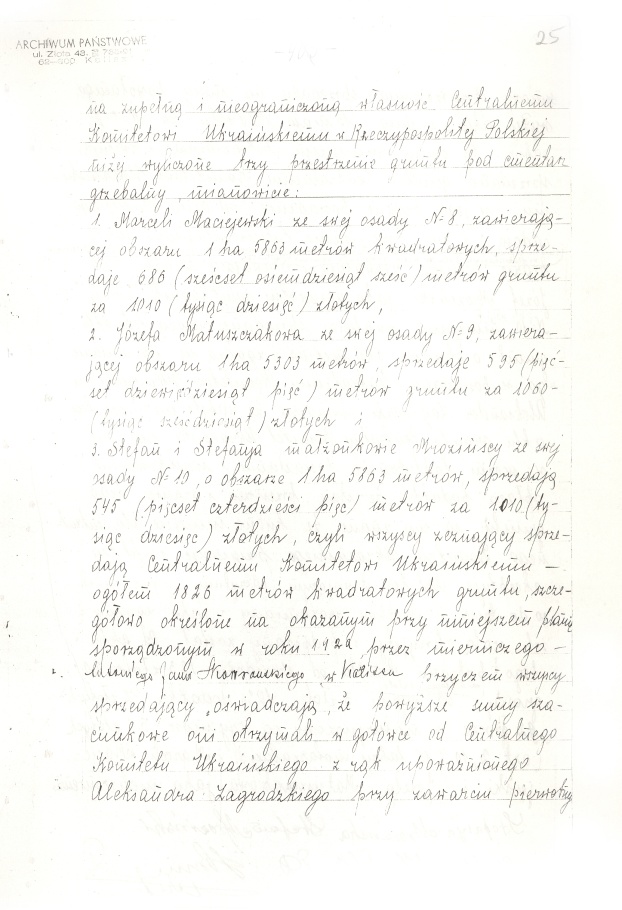 25
ARCHIWUM PAŃSTWOWE
ul. Złota 43,
na zupełną i nieograniczoną własność Centralnemu
Komitetowi Ukraińskiemu w Rzeczypospolitej Polskiej
niżej wyliczone trzy przestrzenie gruntu pod cmentarz
grzebalny, mianowicie:
1. Marceli Maciejewski ze swej osady № 8, zawierają-
cej obszaru 1 ha 5863 metrów kwadratowych, sprze-
daje 686 (sześcset osiemdziesiąt sześć) metrów gruntu
za 1010 (tysiąc dziesięć) złotych,
2. Józefa Matuszczakowa ze swej osady № 9, zawiera-
jącej obszaru 1 ha 5303 metrów, sprzedaje 595 (pięć-
set dziewięćdziesiąt pięć) metrów gruntu za 1060-
(tysiąc sześćdziesiąt) złotych i
3. Stefan i Stefanja małżonkowie Mrozińscy ze swej
osady № 10, o obszarze 1 ha 5863 metrów, sprzedają
545 (pięcset czterdzieści pięc) metrów za 1010 (ty-
siąc dziesięc) złotych, czyli wszyscy zeznający sprze-
dają Centralnemu Komitetowi Ukraińskiemu —
ogółem 1826 metrów kwadratowych gruntu, szcze-
gółowo określone na okazanym przy niniejszem planie
sporządzonym w roku 192 przez mierniczego —
Jana w Kaliszu przyczem wszyscy
sprzedający oświadczają, że powyższe sumy sza-
cunkowe oni otrzymali w gotówce od Centralnego
Komitetu Ukraińskiego z rąk upoważnionego
Aleksandra Zagrodzkiego przy zawarciu pierwotnej